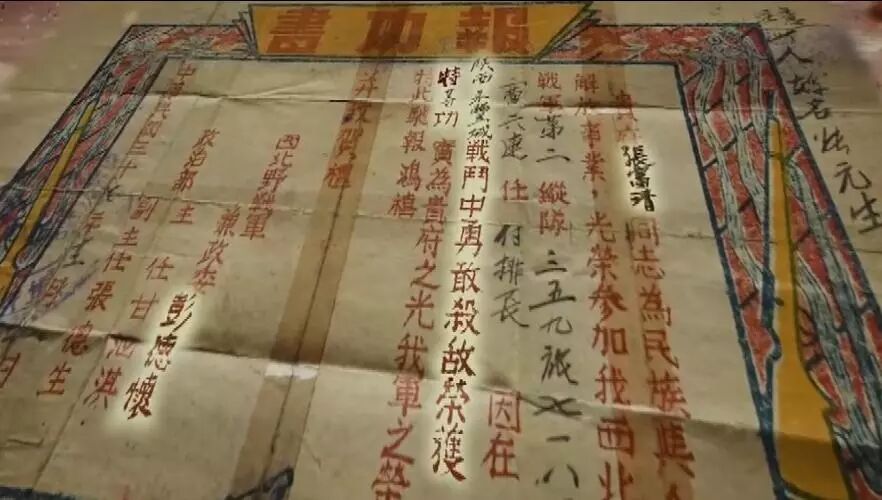 報功書
姓名
元生
貴府張富清同志為民族與人
解放事業，光榮參加我西北
戰軍第二縱隊三五九旅七一八
六連任付排長因在
陝西永豐城戰鬥中勇敢殺敵榮獲
特等功實為貴府之光我軍之榮
特此馳報鴻禧
并致賀
西北野戰軍
兼政委彭德懷
政治部主任甘泗淇
副主任張德生
中華民國三十七年
月
日